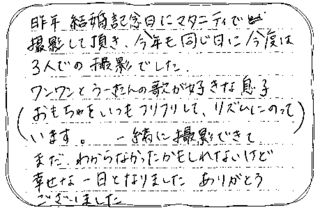 昨年 結婚記念日にマタニティで
撮影して頂き、今年も同じ日に今度は
3人での撮影でした。
ワンワンとうーたんの歌が好きな息子
(おもちゃをいつもフリフリして、リズムにのって)
います。 一緒に撮影できて
まだ、わからなかったかもしれないけど
幸せな一日となりました ありがとう
ございました